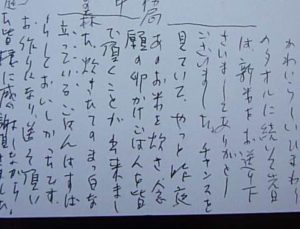 かわいらしいひまわり
のタオルに続く今昔
は、新米をお送り下
さいましてありがとう
ございました。チャンスを
見ていて、やっと昨夜
あのお米を炊き念
願の卵かけごはんを皆
で頂くことが出来まし
た。炊きたてのまっ白な
立っているごはんはすば
らしくおいしかったです。
お作りになり送って頂い
皆様に感謝